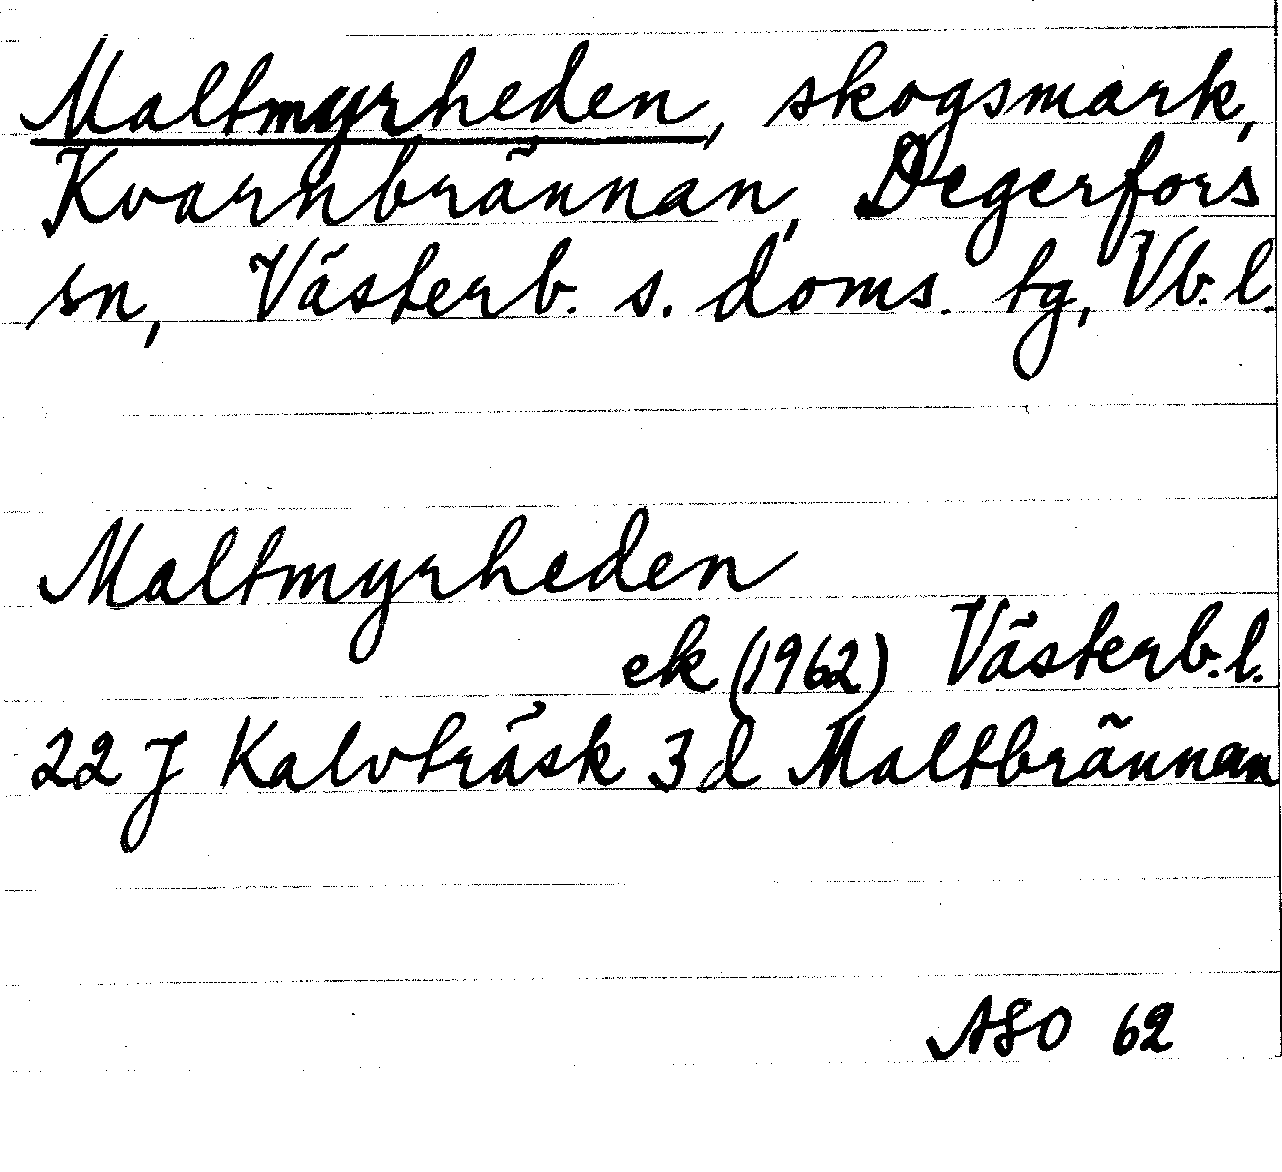 Maltmyrheden, skogsmark,
Kvarnbrännan, Degerfors
sn, Västerb. s. doms. tg, Vb. l.
Maltmyrheden
ek (1962) Västerb. l.
22 J Kalvträsk 3d Maltbrännan
ASO 62